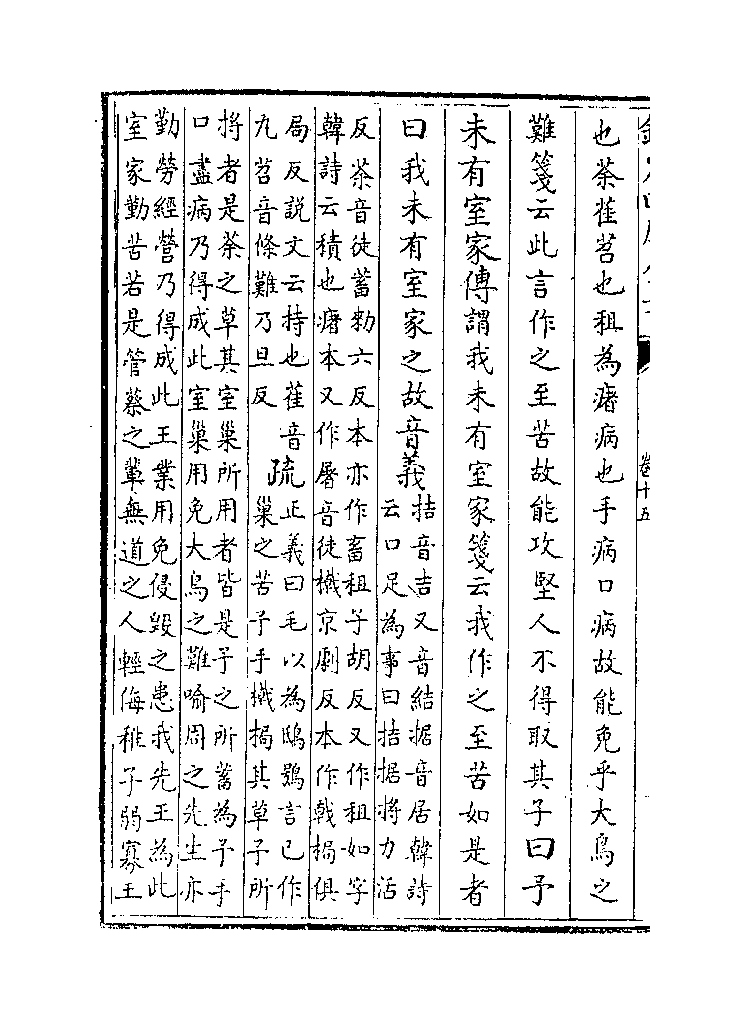 卷十五
也荼萑苕也租為瘏病也手病口病故能免乎大鳥之
難箋云此言作之至苦故能攻堅人不得取其子曰予
未有室家傳謂我未有室家箋云我作之至苦如是者
曰我未有室家之故音義
拮音吉又音結据音居韓詩
云口足為事曰拮据捋力活
反荼音徒蓄勑六反本亦作畜租子胡反又作租如字
韓詩云積也瘏本又作屠音徒撠京劇反本作戟挶俱
局反説文云持也萑音
九苕音條難乃旦反
疏
正義曰毛以為鴟鴞言已作
巢之苦予手撠挶其草予所
捋者是荼之草其室巢所用者皆是予之所蓄為予手
口盡病乃得成此室巢用免大鳥之難喻周之先生亦
勤勞經營乃得成此王業用免侵毀之患我先王為此
室家勤苦若是管蔡之輩無道之人輕侮稚子弱寡王